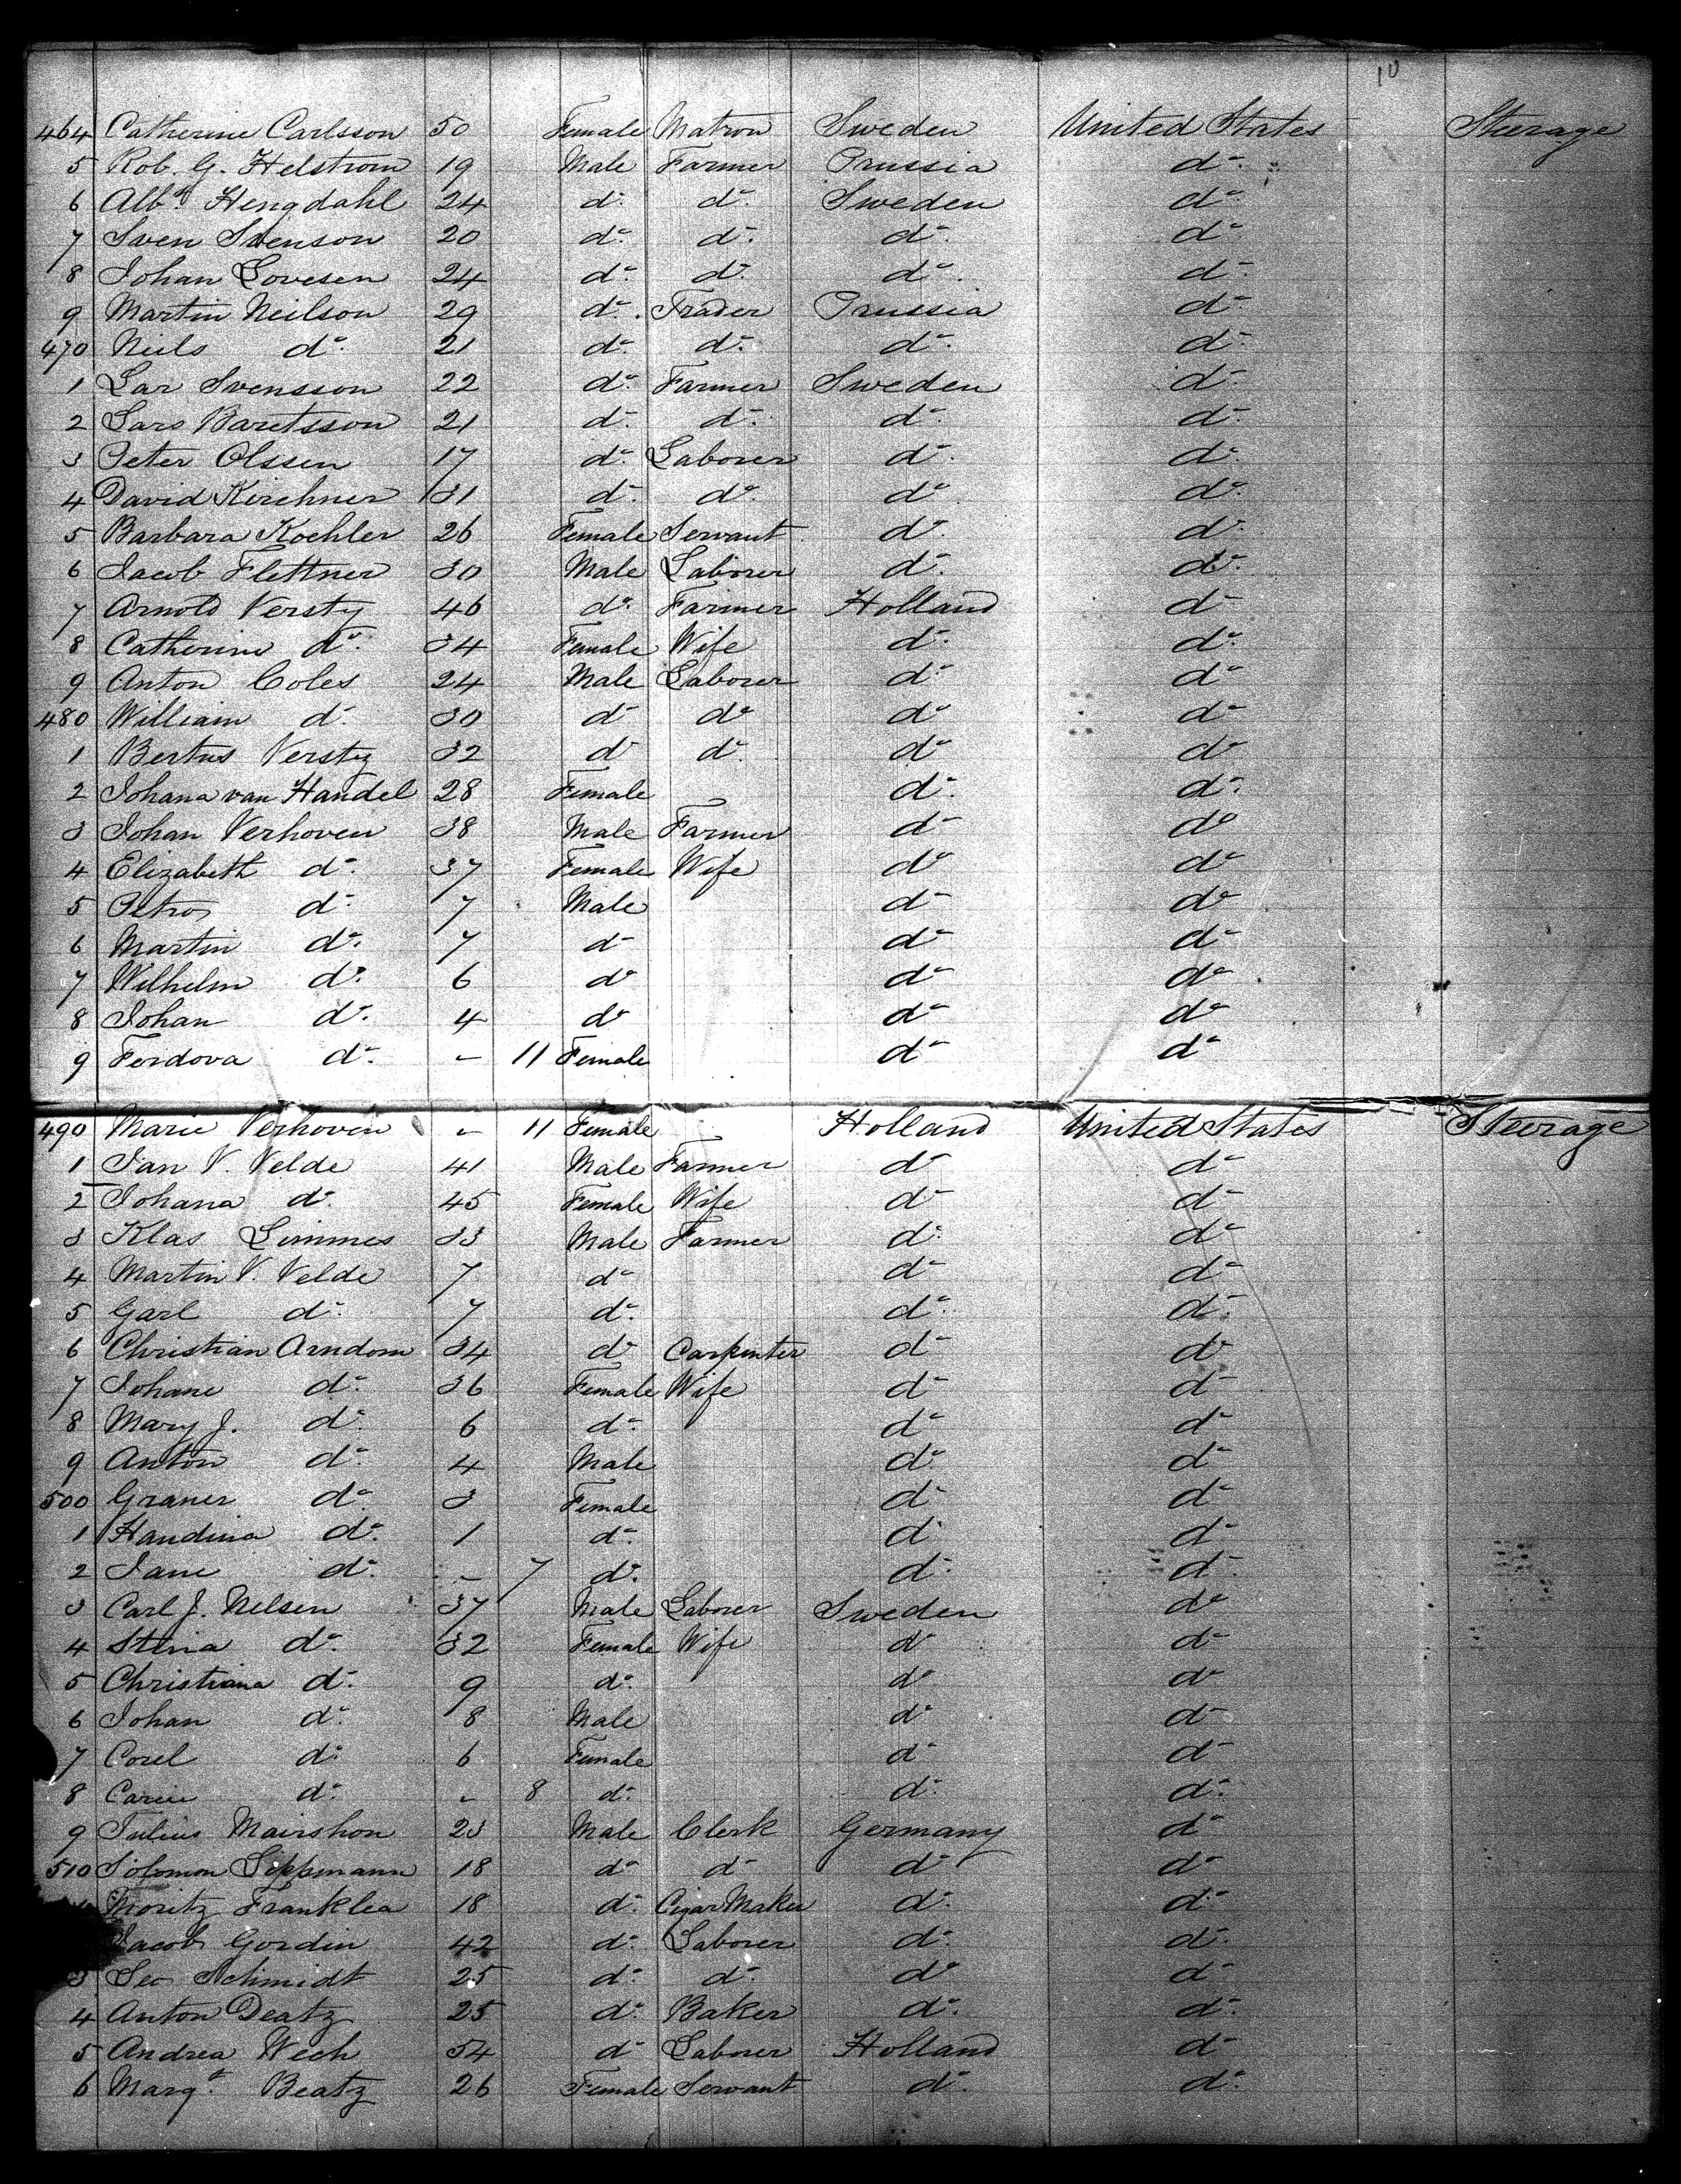 10
464 Catherine Carlsson 50 Female Matron Sweden United States Steerage
5 Rob. G. Helstrom 19 Male Farmer Prussia do
6 Alb. Hengdahl 24 do do Sweden do
7 Sven Svenson 20 do do do do
8 Johan Lovesen 24 do do do do
9 Martin Neilson 29 do Trader Prussia do
470 Neils do 21 do do do do
1 Lar Svensson 22 do Farmer Sweden do
2 Lars Baretsson 21 do do do do
3 Peter Olssen 17 do Laborer do do
4 David Kirchner 31 do do do do
5 Barbara Kochler 26 Female Servant do do
6 Jacob Flettner 30 Male Laborer do do
7 Arnold Versty 46 do Farmer Holland do
8 Catherine do 34 Female Wife do do
9 Anton Coles 24 Male Laborer do do
480 William do 30 do do do do
1 Bertus Versty 32 do do do do
2 Johana van Handel 28 Female do do
3 Johan Verhoven 38 Male Farmer do do
4 Elizabeth do 37 Female Wife do do
5 Petros do 7 Male do do
6 Martin do 7 do do do
7 Wilhelm do 6 do do do
8 Johan do 4 do do do
9 Ferdova do - 11 Female do do
490 Marie Verhoven - 11 Female Holland United States Steerage
1 Jan V. Velde 41 Male Farmer do do
2 Johana do 45 Female Wife do do
3 Klas Limmes 33 Male Farmer do do
4 Martin V. Velde 7 do do do
5 Garl do 7 do do do
6 Christian Arndom 34 do Carpinter do do
7 Johane do 36 Female Wife do do
8 Mary J. do 6 do do do
9 Anton do 4 Male do do
500 Graner do 3 Female do do
1 Handina do 1 do do do
2 Jane do - 7 do do do
3 Carl J. Nelsen 37 Male Laborer Sweden do
4 Stina do 32 Female Wife do do
5 Christiana do 9 do do do
6 Johan do 8 Male do do
7 Corel do 6 Female do do
8 Carin do - 8 do do do
9 Julius Mairshon 23 Male Clerk Germany do
510 Solomon Lippmann 18 do do do do
Moritz Franklea 18 do Cigar Maker do do
Jacob Gordin 42 do Laborer do do
3 Leo Schmidt 25 do do do do
4 Anton Deatz 25 do Baker do do
5 Andrea Wech 54 do Laborer Holland do
6 Margt. Beatz 26 Female Servant do do